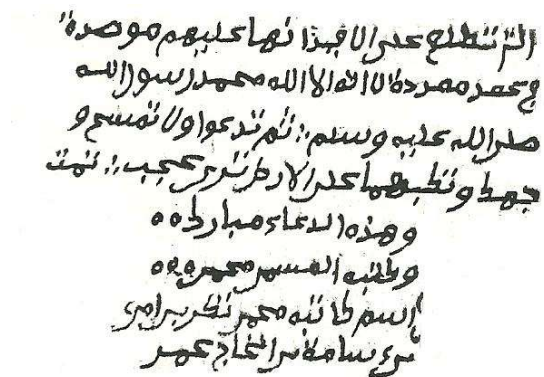 التى تطلع على الافئدة انها عليهم موصدة
في عمد ممددة لا اله الا الله محمد رسول الله
صلى الله عليه وسلم ∴ ثم تدعوا ولا تمسح و
جهك وتكبهما على الارض ترى عجب ∴ تمت
وهذه الدعاء مبارك
وكتبه المسمى محمد
اسم كاتبه محمد